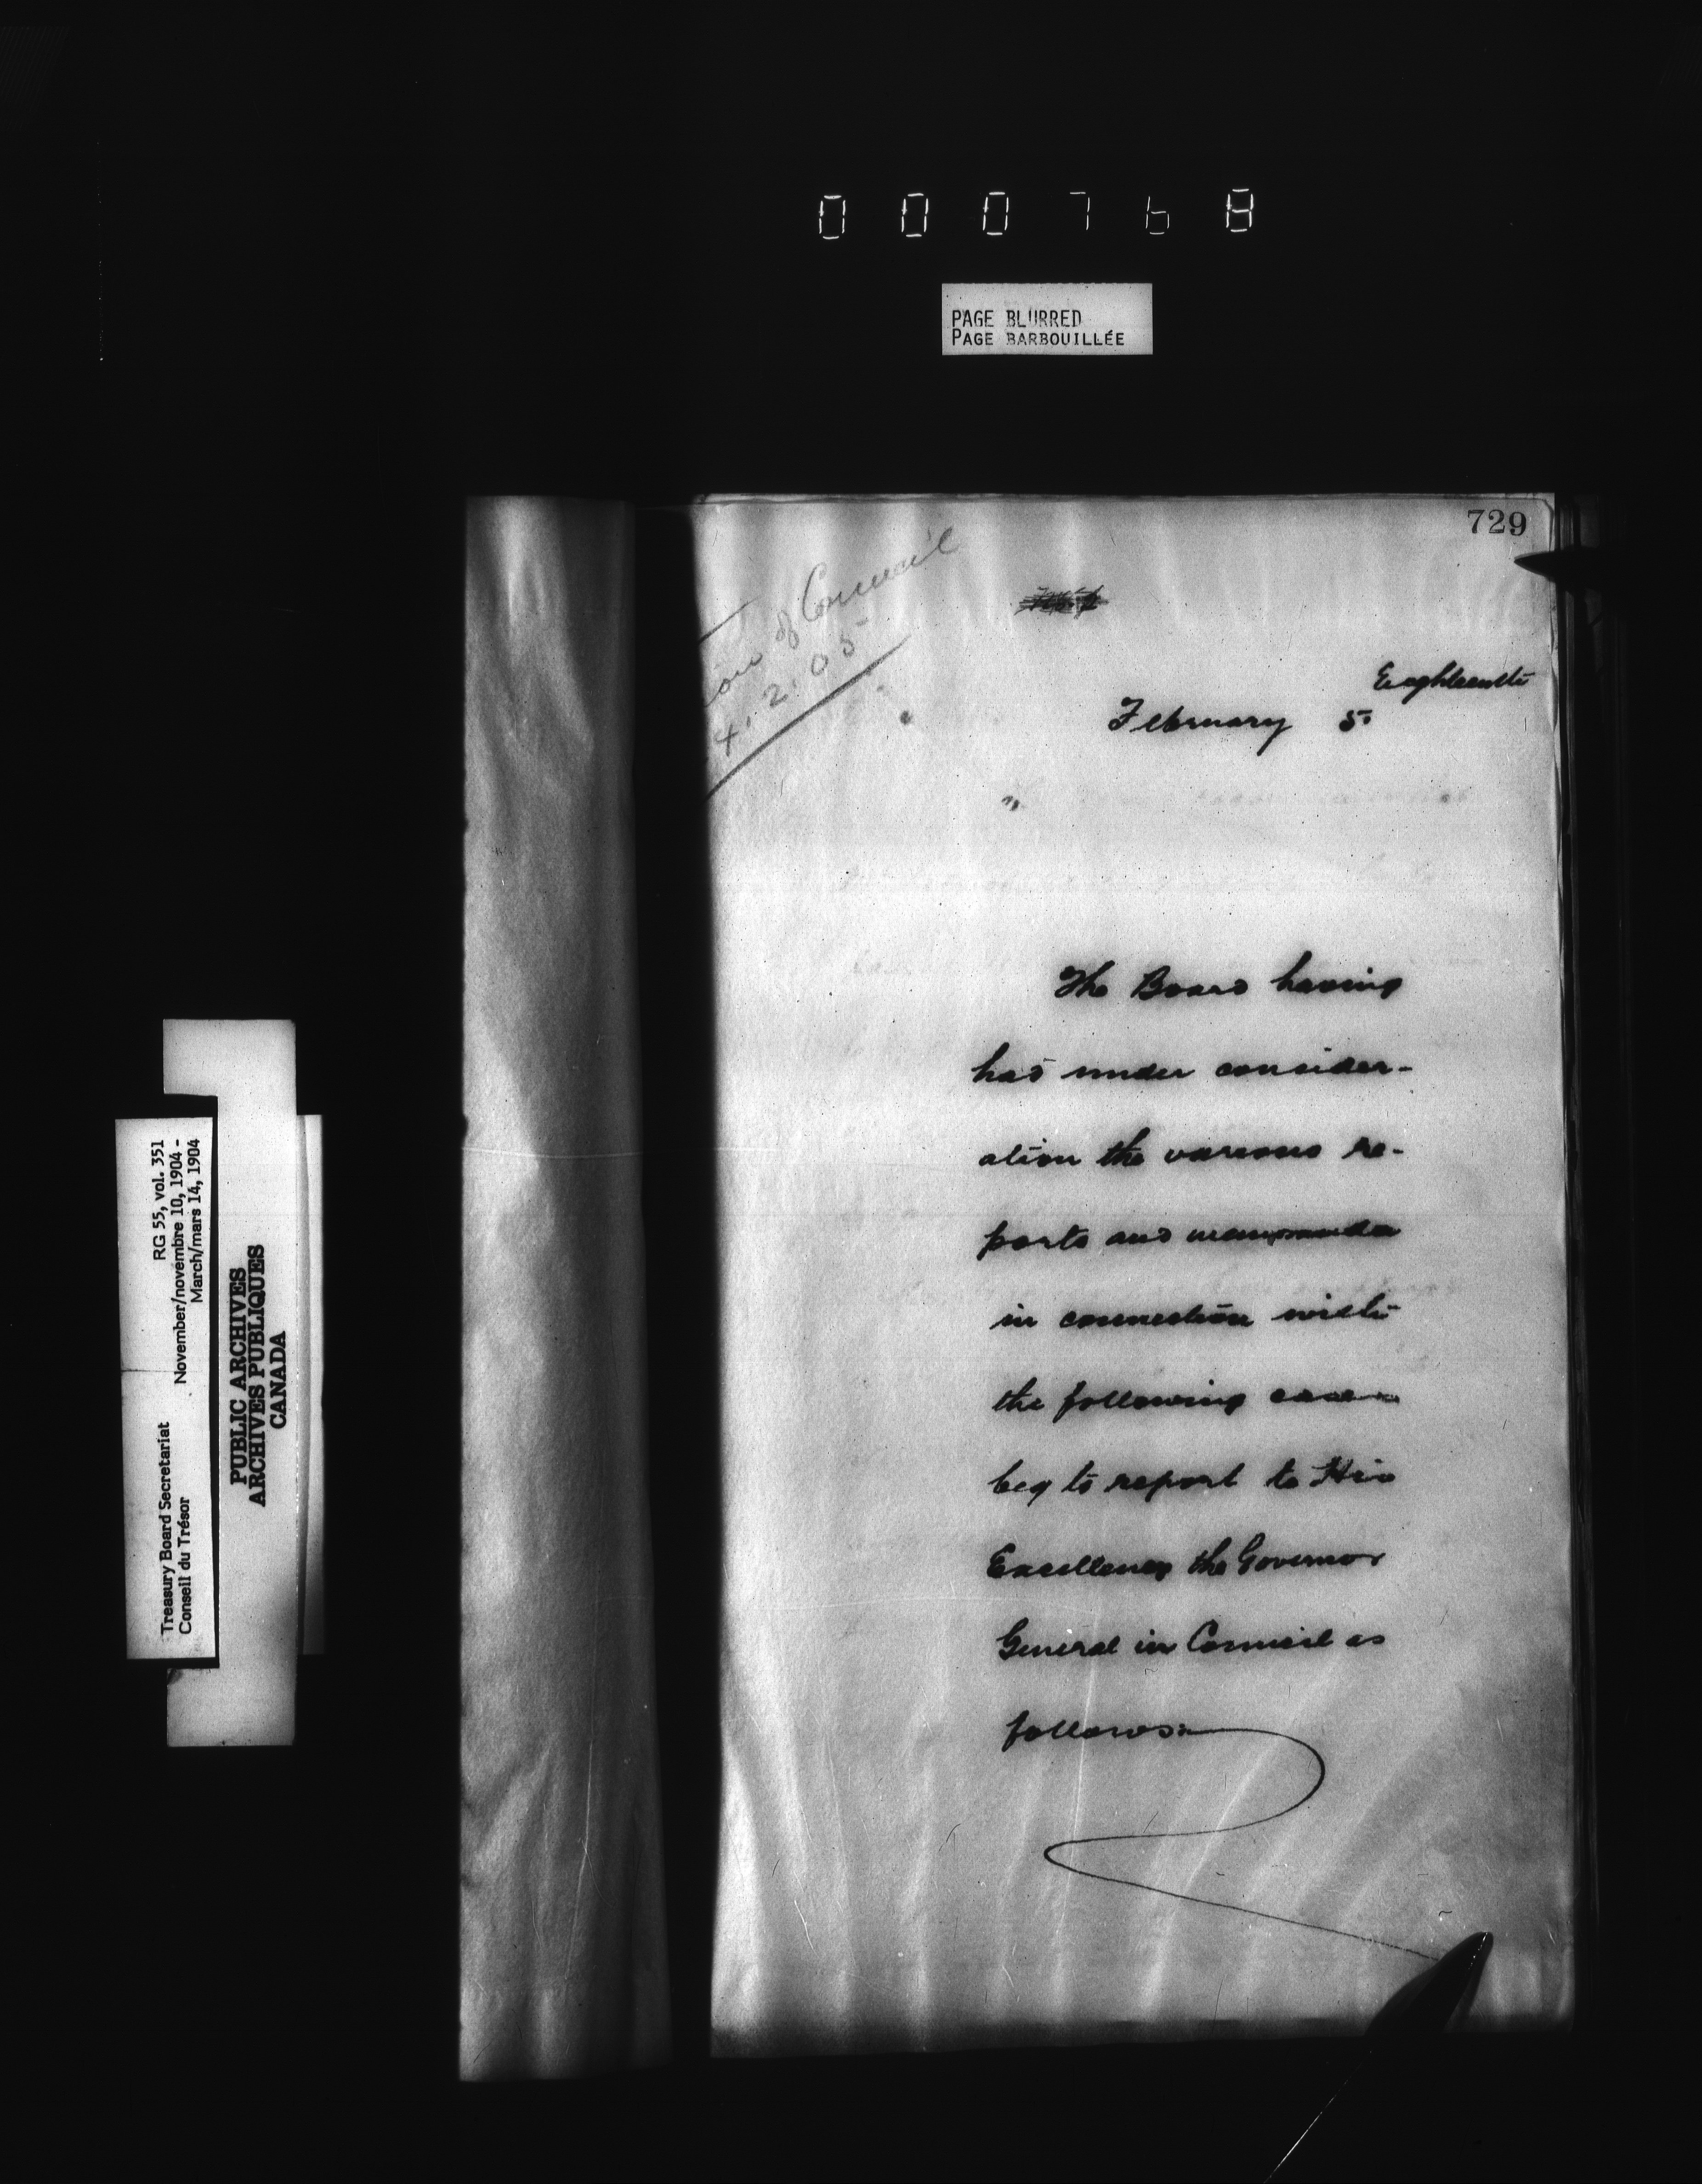 000768
PAGE BLURRED
PAGE BARBOUILLÉE
729
of Council
4.2.05
Eighteenth
February 5
The Board having
had under consider-
ation the various re-
ports and memoranda
in connection with
the following cases
beg to report to His
Excellency the Governor
General in Council as
follows:-
Treasury Board Secretariat RG 55, vol. 351
Conseil du Trésor November/novembre 10, 1904 -
March/mars 14, 1904
PUBLIC ARCHIVES
ARCHIVES PUBLIQUES
CANADA